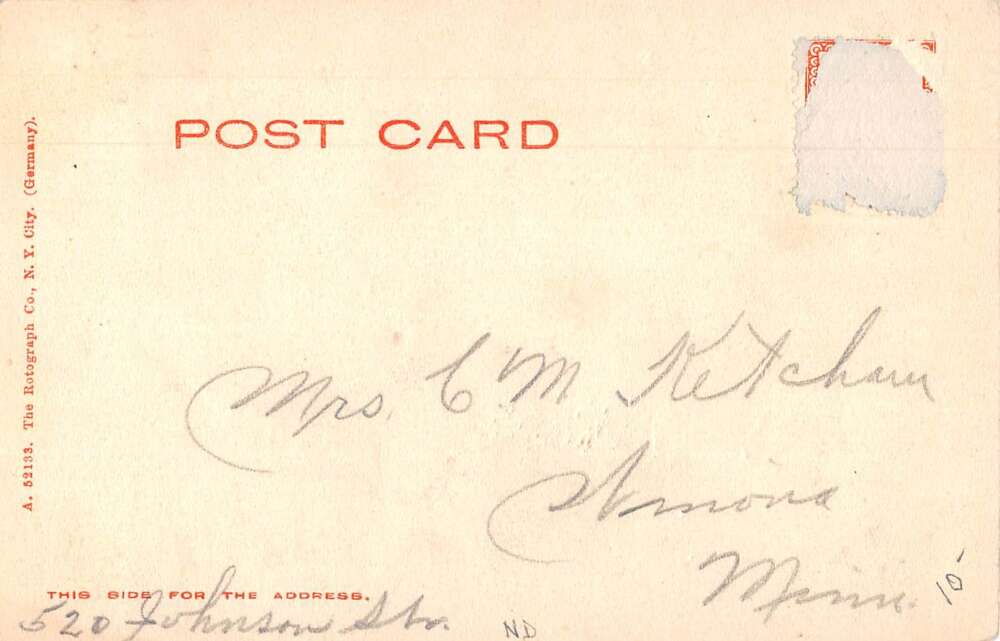 POST CARD
A. 52133. The Rotograph Co., N. Y. City. (Germany).
Mrs. C. M. Ketcham
Winona
Minn.
THIS SIDE FOR THE ADDRESS.
520 Johnson Str.
ND
10-